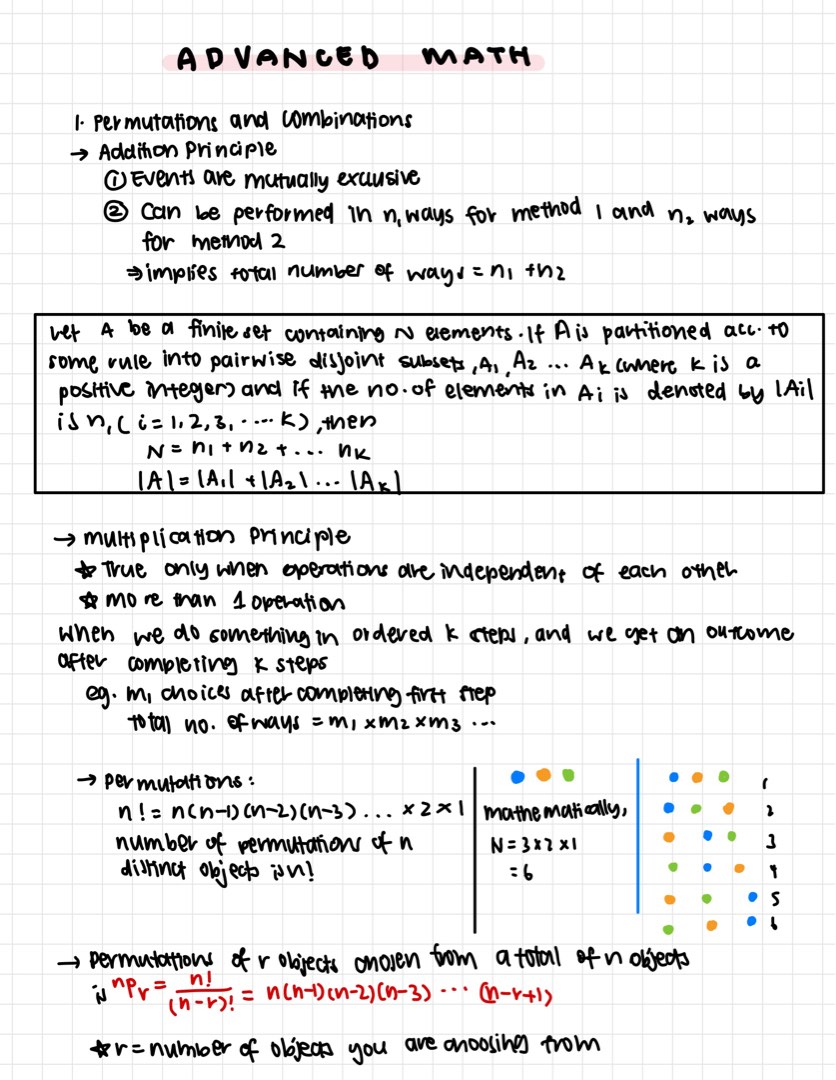 ADVANCED MATH
1. Permutations and Combinations
→ Addition Principle
① Events are mutually exclusive
② Can be performed in n₁ ways for method 1 and n₂ ways
for method 2
⇒ implies total number of ways = n₁ + n₂
Let A be a finite set containing N elements. If A is partitioned acc. to
some rule into pairwise disjoint subsets, A₁, A₂ ... Aₖ (where k is a
positive integer) and if the no. of elements in Ai is denoted by |Ai|
is n, (i = 1, 2, 3, .... k), then
N = n₁ + n₂ + ... nₖ
|A| = |A₁| + |A₂| ... |Aₖ|
→ multiplication principle
☆ True only when operations are independent of each other
☆ more than 1 operation
When we do something in ordered k steps, and we get an outcome
after completing k steps
eg. m₁ choices after completing first step
total no. of ways = m₁ × m₂ × m₃ ...
→ permutations:
n! = n(n-1)(n-2)(n-3) ... × 2 × 1
number of permutations of n
distinct objects is n!
mathematically,
N = 3 × 2 × 1
= 6
1
2
3
4
5
6
→ permutations of r objects chosen from a total of n objects
is nPr = n!/(n-r)! = n(n-1)(n-2)(n-3) ... (n-r+1)
☆ r = number of objects you are choosing from